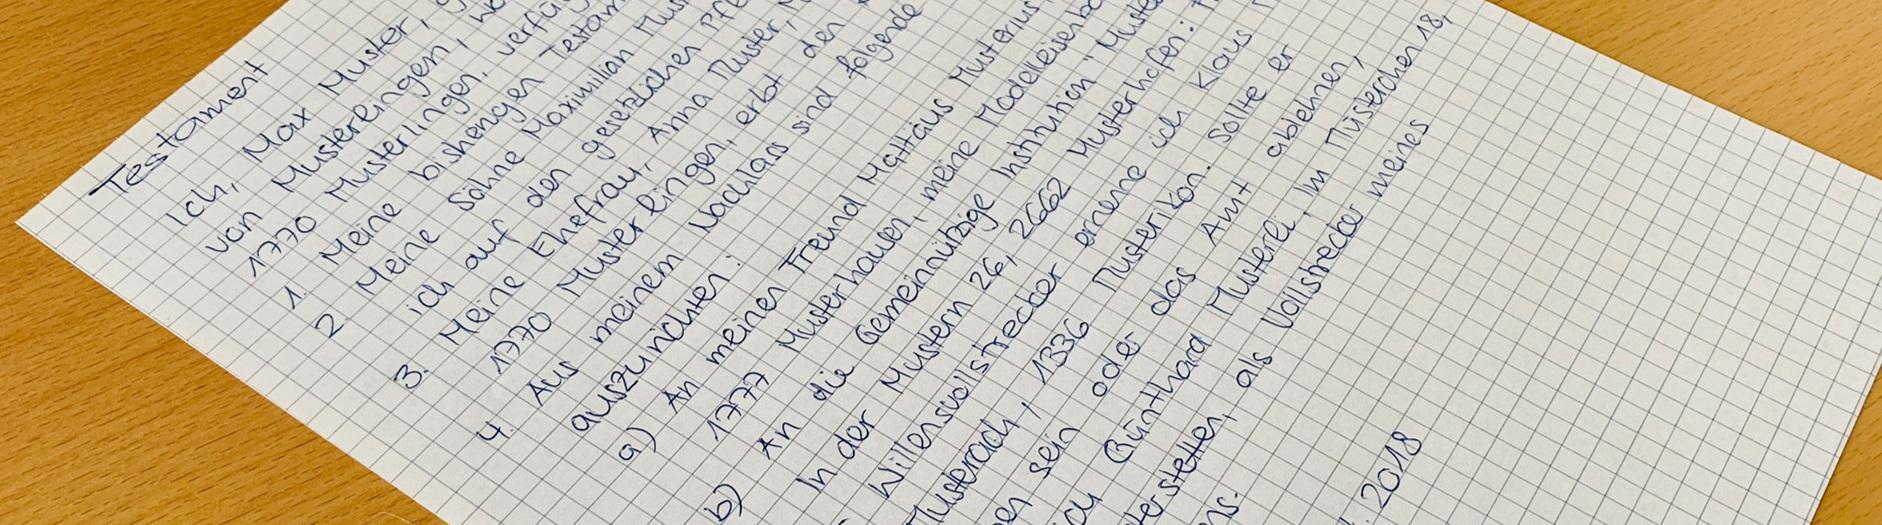 Testament
Ich, Max Muster,
von Musterlingen,
1770 Musterlingen, verfüg
1. Meine bisherigen Testam
2 Meine Söhne Maximilian Mus
ich auf den gesetzlichen Pf
3. Meine Ehefrau, Anna Muster,
1770 Musterlingen, erbt den
4. Aus meinem Nachlass sind folgende
auszurichten:
a) An meinen Freund Mattäus Musterius,
1777 Musterhausen, meine Modelleisenb
b) An die Gemeinnützige Institution "Muste
In der Mustern 26, 2662 Musterhofen:
Willensvollstrecker ernenne ich Klaus
Musterach, 1336 Musterikon. Sollte er
sein oder das Amt ablehnen,
ich Günthard Musterli, Im Müsterchen 18,
terstetten, als Vollstrecker meines
ns.
2018